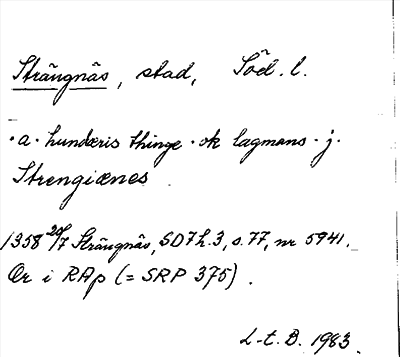 Strängnäs, stad, Söd. l.
· a · hundæris thinge · ok lagmans · j ·
Strengiænes
1358 20/7 Strängnäs, SD7h.3, s.77, nr 5941.
Or i RAp (= SRP 375).
L-t. B. 1983.